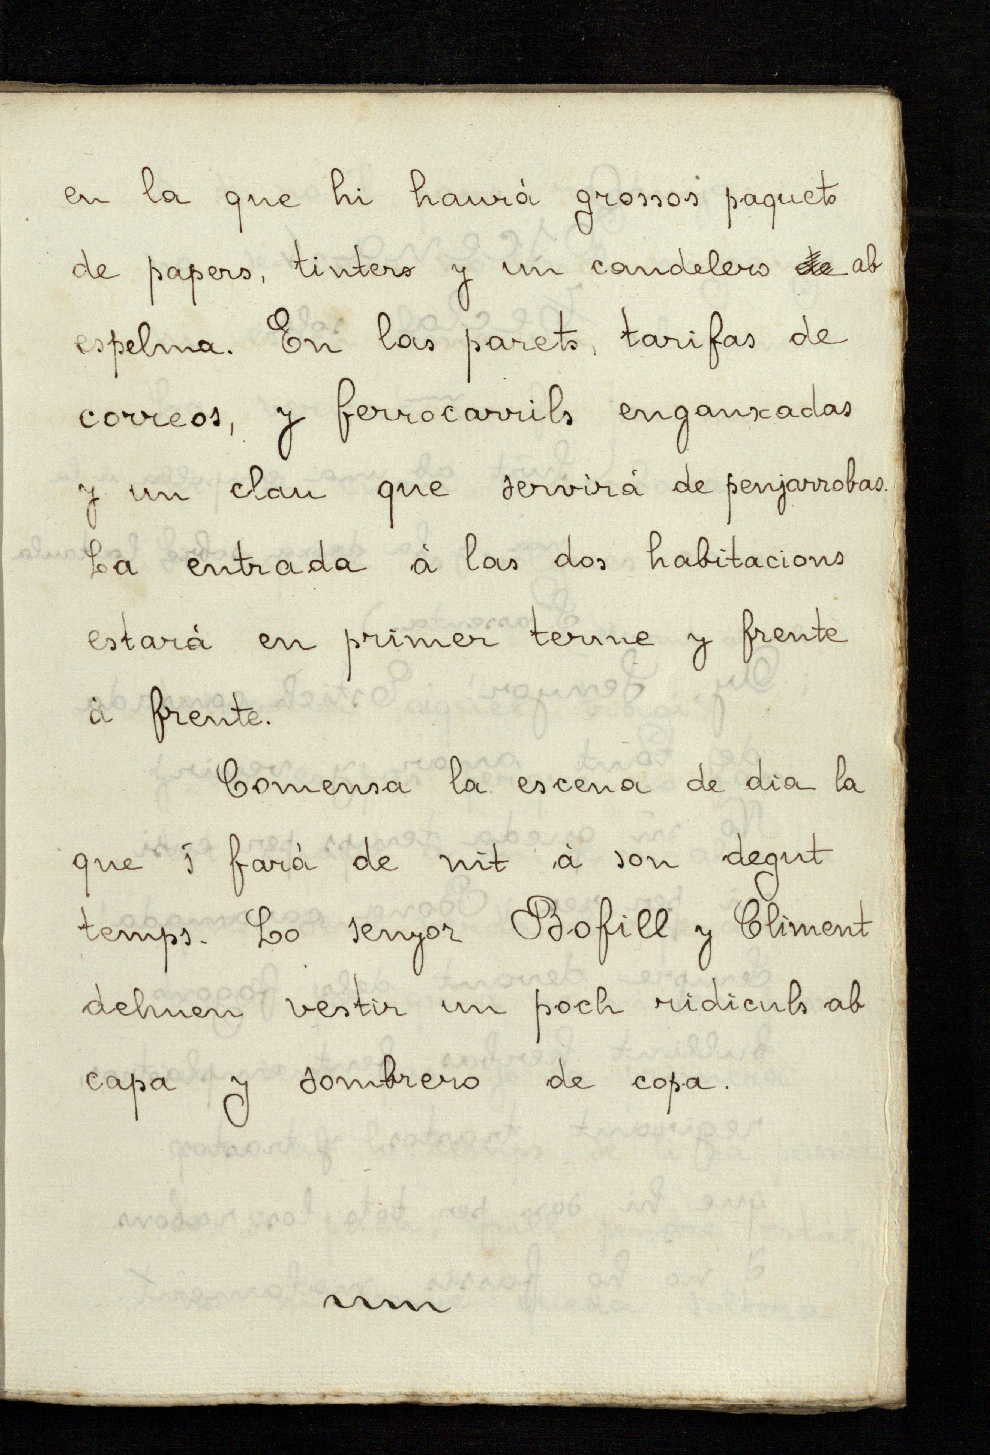 en la que hi haurá grossos paquets
de papers, tinters y un candelero de ab
espelma. En las parets, tarifas de
correos, y ferrocarrils enganxadas
y un clau que servirá de penjarrobas.
La entrada á las dos habitacions
estará en primer terme y frente
á frente.
Comensa la escena de dia la
que s fará de nit á son degut
temps. Lo senyor Bofill y Climent
dehuen vestir un poch ridiculs ab
capa y sombrero de copa.